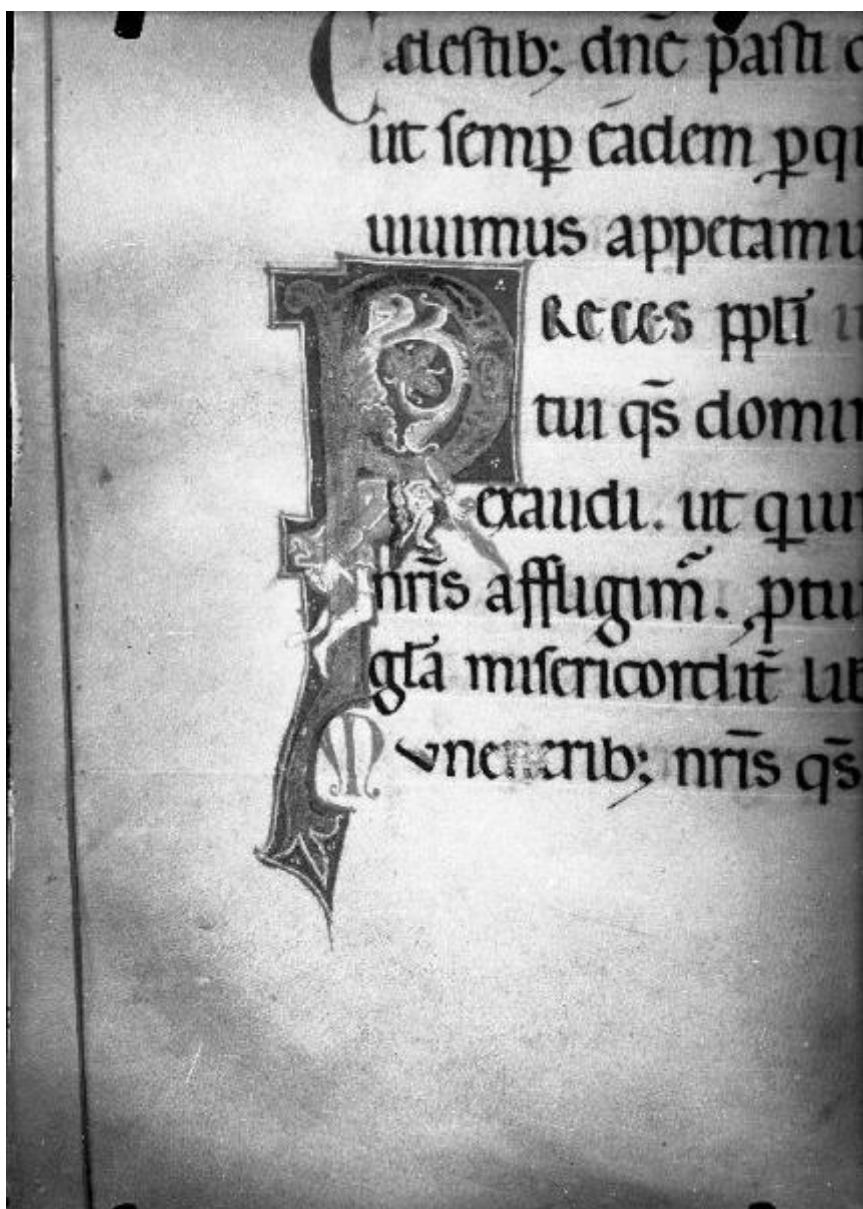 Cælestib; dn̄e pasti
ut semp̲ eādem p̲qu
uiuimus appetamu
PReces pp̲li
tui qs̄ domin
exaudi. ut qui
nr̄is affligim̃. p̲ tui
gl̄a misericordit̄ lib
Munerib; nr̄is qs̄